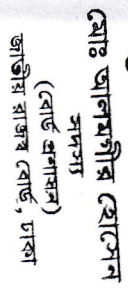 মোঃ আলমগীর হোসেন
সদস্য
(বোর্ড প্রশাসন)
জাতীয় রাজস্ব বোর্ড, ঢাকা